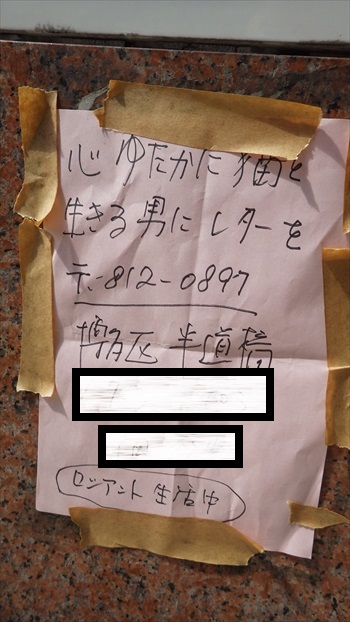 心ゆたかに猫と
生きる男にレターを
〒:812-0897
博多区 半道橋
ロシアント生活中